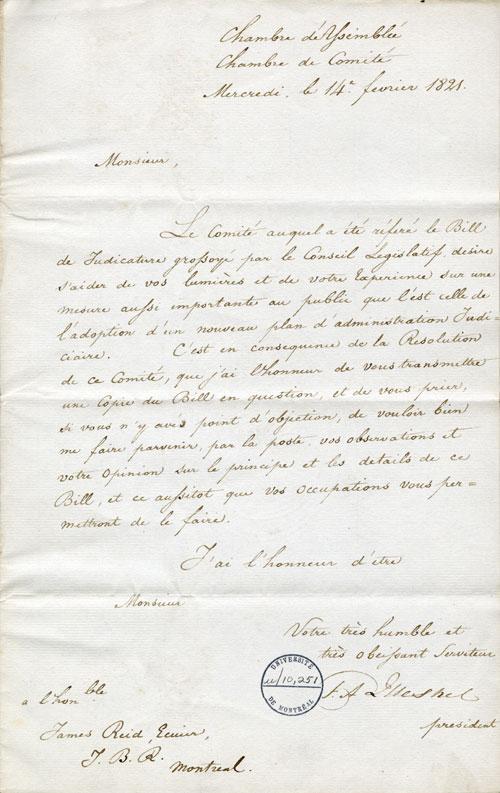 Chambre d'Assemblée
Chambre de Comité
Mercredi, le 14e février 1821.
Monsieur,
Le Comité auquel a été référé le Bill
de Judicature grossoyé par le Conseil Législatif, désire
s'aider de vos lumières et de votre Experience sur une
mesure aussi importante au public que l'est celle de
l'adoption d'un nouveau plan d'administration Judi=
ciaire. C'est en consequence de la Resolution
de ce Comité, que j'ai l'honneur de vous transmettre
une Copie du Bill en question, et de vous prier,
si vous n'y avés point d'objection, de vouloir bien
me faire parvenir, par la poste, vos observations et
votre Opinion sur le principe et les détails de ce
Bill, et ce aussitot que vos Occupations vous per=
mettront de le faire.
J'ai l'honneur d'être
Monsieur
Votre très humble et
très obeissant Serviteur
F. A. Quesnel
président
UNIVERSITÉ
u/10,251
DE MONTRÉAL
a l'honble
James Reid, Ecuier,
J. B. R. Montreal.